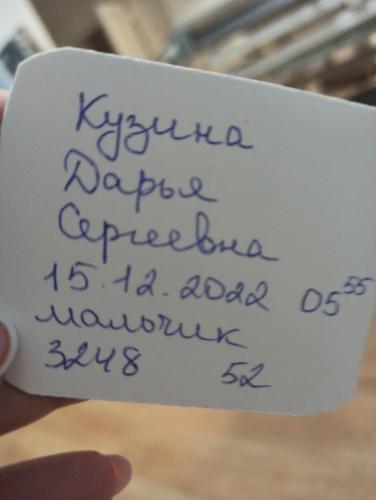 Кузина
Дарья
Сергеевна
15.12.2022 05⁵⁵
мальчик
3248 52